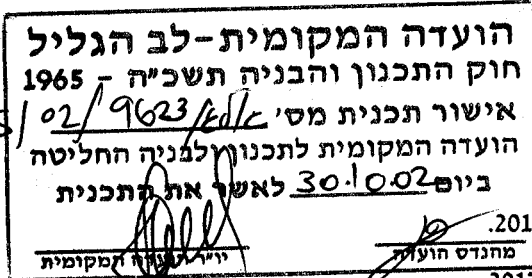 הועדה המקומית-לב הגליל
חוק התכנון והבניה תשכ"ה - 1965
אישור תכנית מס' /9623/02/
הועדה המקומית לתכנון ולבניה החליטה
ביום 30.10.02 לאשר את התכנית
201.
יו"ר הועדה המקומית מהנדס הועדה